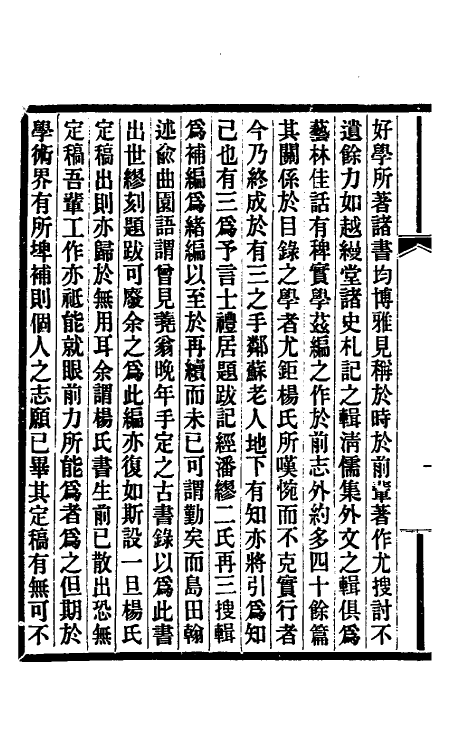 好學所著諸書均博雅見稱於時於前輩著作尤搜討不
遺餘力如越縵堂諸史札記之輯淸儒集外文之輯俱爲
藝林佳話有稗實學茲編之作於前志外約多四十餘篇
其關係於目錄之學者尤鉅楊氏所嘆惋而不克實行者
今乃終成於有三之手鄰蘇老人地下有知亦將引爲知
己也有三爲予言士禮居題跋記經潘繆二氏再三搜輯
爲補編爲緒編以至於再續而未已可謂勤矣而島田翰
述兪曲園語謂曾見蕘翁晚年手定之古書錄以爲此書
出世繆刻題跋可廢余之爲此編亦復如斯設一旦楊氏
定稿出則亦歸於無用耳余謂楊氏書生前已散出恐無
定稿吾輩工作亦祗能就眼前力所能爲者爲之但期於
學術界有所埤補則個人之志願已畢其定稿有無可不
一